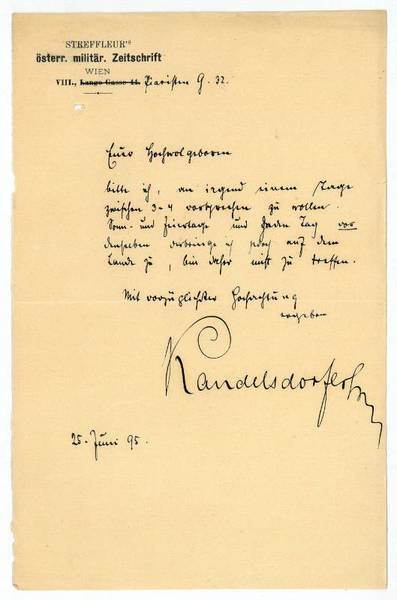 STREFFLEUR'S
österr. militär. Zeitschrift
WIEN
VIII., Lange Gasse 44. Piaristen G. 32.
Euer Hochwolgeboren
bitte ich, an irgend einem Tage
zwischen 3-4 vorsprechen zu wollen.
Sonn- und Feiertage und jeden Tag vor
denselben verbringe ich stets auf dem
Lande zu, bin daher nicht zu treffen.
Mit vorzüglichster Hochachtung
ergeben
Kandelsdorfer
25. Juni 95.